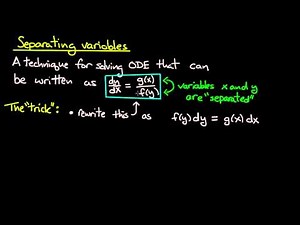 Separating variables
A technique for solving ODE that can
be written as dy/dx = g(x)/f(y)
variables x and y
are "separated"
The "trick": • rewrite this as f(y) dy = g(x) dx